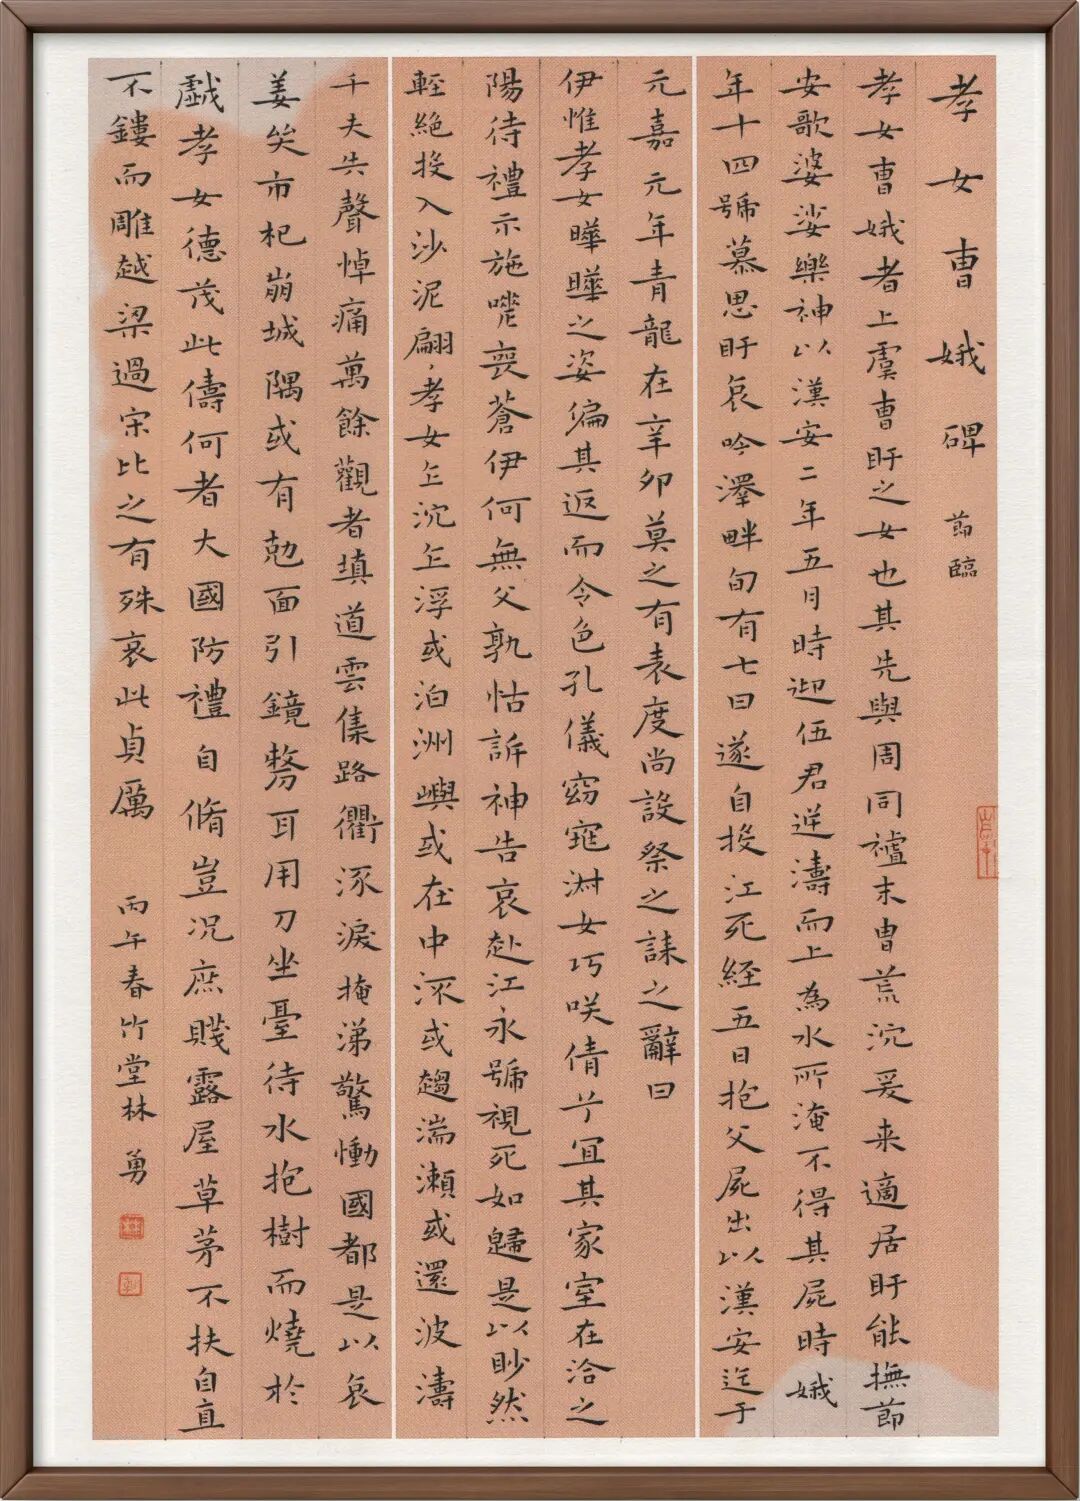 孝女曹娥碑 節臨
孝女曹娥者上虞曹盱之女也其先與周同祖末曹荒沉爰来適居盱能撫節
安歌婆娑樂神以漢安二年五月時迎伍君逆濤而上為水所淹不得其屍時娥
年十四號慕思盱哀吟澤畔旬有七日遂自投江死経五日抱父屍出以漢安迄于
元嘉元年青龍在辛卯莫之有表度尚設祭之誄之辭曰
伊惟孝女曄曄之姿偏其返而令色孔儀窈窕淑女巧咲倩兮宜其家室在洽之
陽待禮未施嗟喪蒼伊何無父孰怙訴神告哀赴江永號視死如歸是以眇然
輕絶投入沙泥翩〻孝女乍沉乍浮或泊洲嶼或在中流或趨湍瀬或還波濤
千夫失聲悼痛萬餘觀者填道雲集路衢泳淚掩涕驚慟國都是以哀
姜哭市杞崩城隅或有勊面引鏡剺耳用刀坐臺待水抱樹而燒於
戯孝女德茂此儔何者大國防禮自脩豈况庶賤露屋草茅不扶自直
不鏤而雕越梁過宋比之有殊哀此貞厲 丙午春竹堂林勇